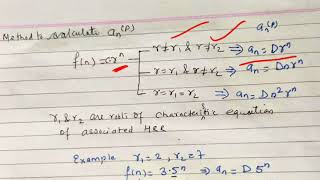 Method to calculate aₙ⁽ᵖ⁾
aₙ⁽ᵖ⁾
r≠r₁ & r≠r₂ ⇒ aₙ = Drⁿ
f(n) = crⁿ r=r₁ & r≠r₂ ⇒ aₙ = Dnrⁿ
r=r₁=r₂ ⇒ aₙ = Dn²rⁿ
r₁ & r₂ are roots of characteristic equation
of associated HRR
Example r₁=2, r₂=7
f(n) = 3·5ⁿ ⇒ aₙ = D5ⁿ